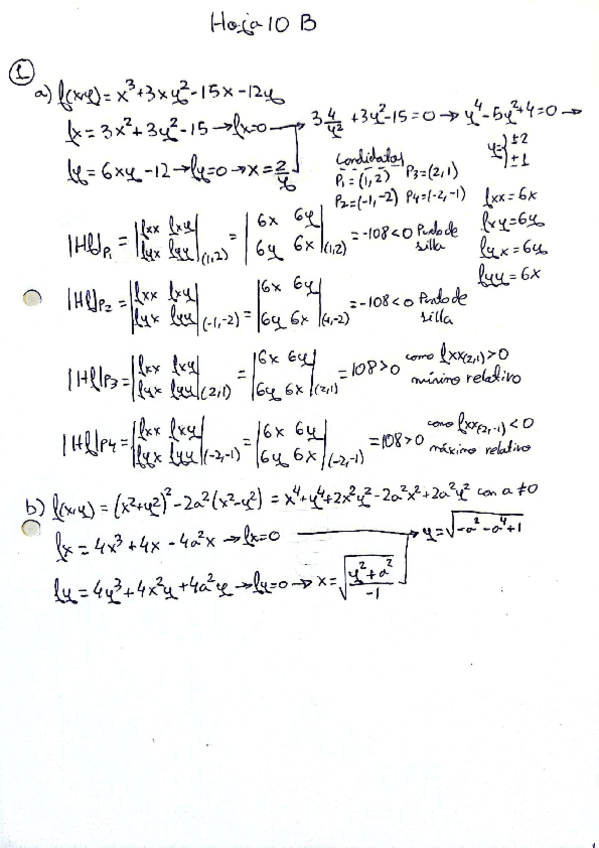 Hoja 10 B
1
a) f(x,y) = x³+3xy²-15x-12y
fx = 3x²+3y²-15 → fx=0 → 3 4/y² +3y²-15=0 → y⁴-5y²+4=0 →
y= ±2
±1
fy = 6xy-12 → fy=0 → x=2/y
Candidatos
P₁=(1,2) P₃=(2,1)
P₂=(-1,-2) P₄=(-2,-1)
fxx=6x
fxy=6y
fyx=6y
fyy=6x
|Hf|P₁ = |fxx fxy / fyx fyy|(1,2) = |6x 6y / 6y 6x|(1,2) = -108<0 Punto de silla
|Hf|P₂ = |fxx fxy / fyx fyy|(-1,-2) = |6x 6y / 6y 6x|(-1,-2) = -108<0 Punto de silla
|Hf|P₃ = |fxx fxy / fyx fyy|(2,1) = |6x 6y / 6y 6x|(2,1) = 108>0 como fxx(2,1)>0 mínimo relativo
|Hf|P₄ = |fxx fxy / fyx fyy|(-2,-1) = |6x 6y / 6y 6x|(-2,-1) = 108>0 como fxx(-2,-1)<0 máximo relativo
b) f(x,y) = (x²+y²)²-2a²(x²-y²) = x⁴+y⁴+2x²y²-2a²x²+2a²y² con a≠0
fx = 4x³+4x-4a²x → fx=0 → y=√(-a²-a⁴+1)
fy = 4y³+4x²y+4a²y → fy=0 → x=√((y²+a²)/-1)